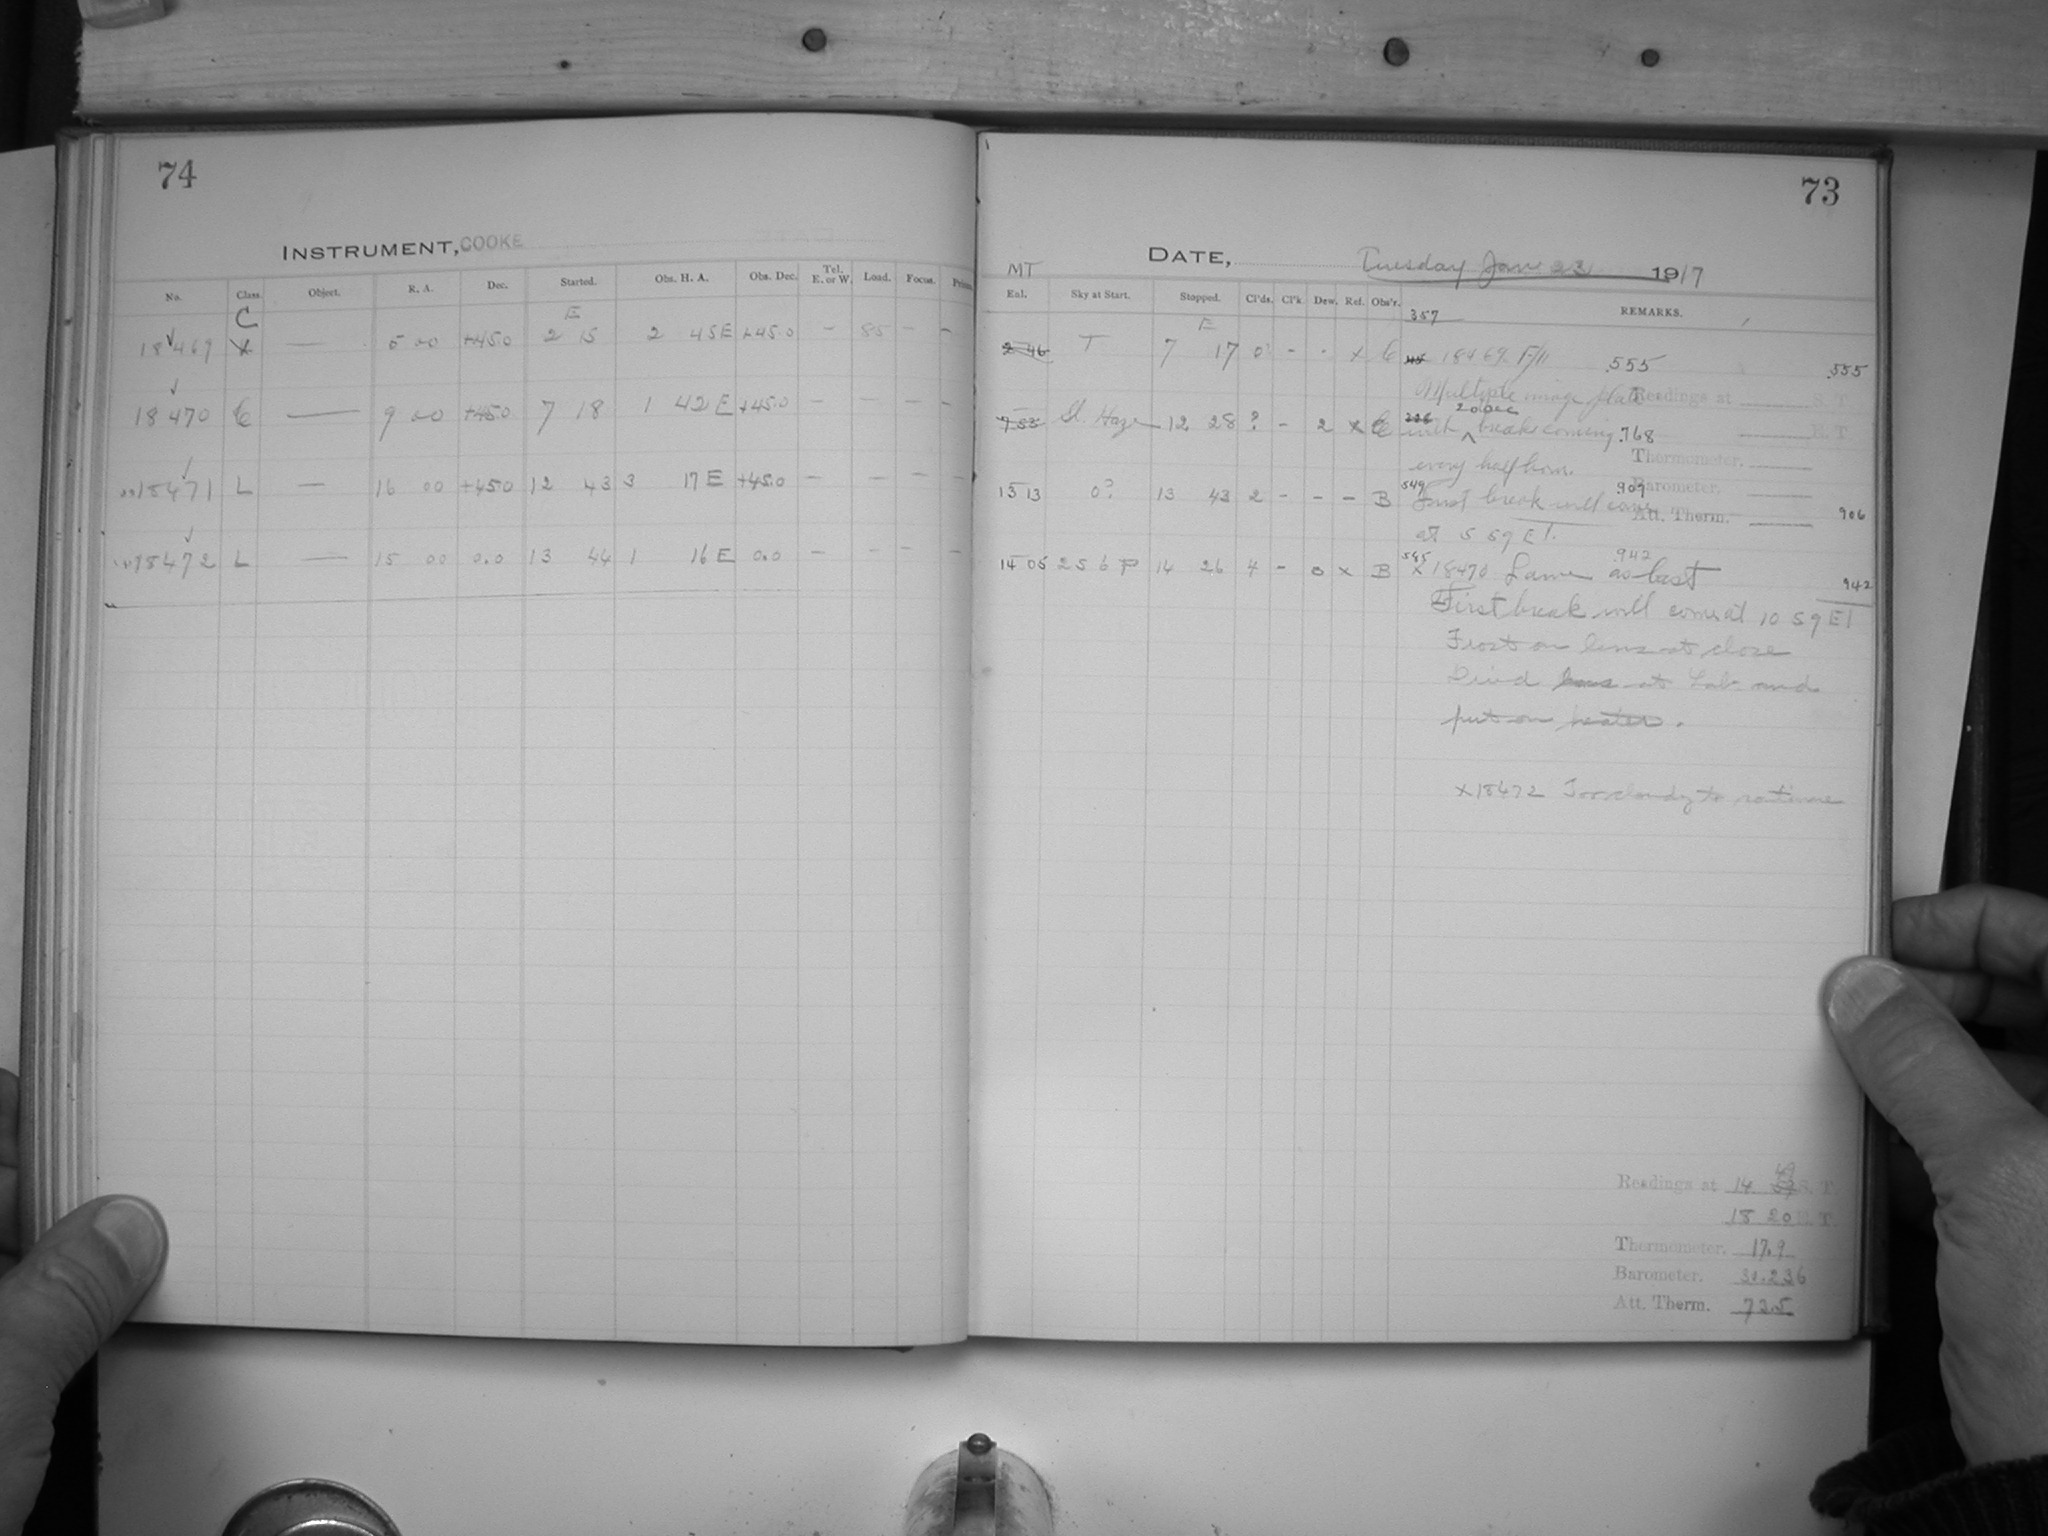 74
INSTRUMENT, COOKE
No. Class. Object. R. A. Dec. Started. Obs. H. A. Obs. Dec. Tel. E. or W. Load. Focus. Prism.
C E
18469 — 5 00 +45.0 2 15 2 45E +45.0 - 85 - -
18470 C — 9 00 +45.0 7 18 1 42 E +45.0 - - - -
18471 L — 16 00 +45.0 12 43 3 17 E +45.0 - - - -
18472 L — 15 00 0.0 13 44 1 16 E 0.0 - - - -
73
DATE, Tuesday Jan 23 1917
MT
Enl. Sky at Start. Stopped. Cl'ds. Cl'k. Dew. Ref. Obs'r. REMARKS.
357
E
2 46 T 7 17 0 - - x C 18469 F/11 .555 .555
Multiple image plate
Readings at S. T.
20 sec
7 53 Sl. Haze 12 28 ? - 2 x C with ^ break coming .768
E. T.
every half hour. Thermometer.
15 13 0? 13 43 2 - - - B 549 First break will come .907 906
Barometer.
at 5 59 ET. Att. Therm.
14 05 2 5 6 P 14 26 4 - 0 x B 545 x 18470 Same as last .942 942
First break will come at 10 59 ET
Frost on lens at close
Dried lens at Lab and
put on heater.
x18472 Too cloudy to continue
Readings at 14 49 S. T.
18 20 E. T.
Thermometer. 17.9
Barometer. 30.236
Att. Therm. 72.5